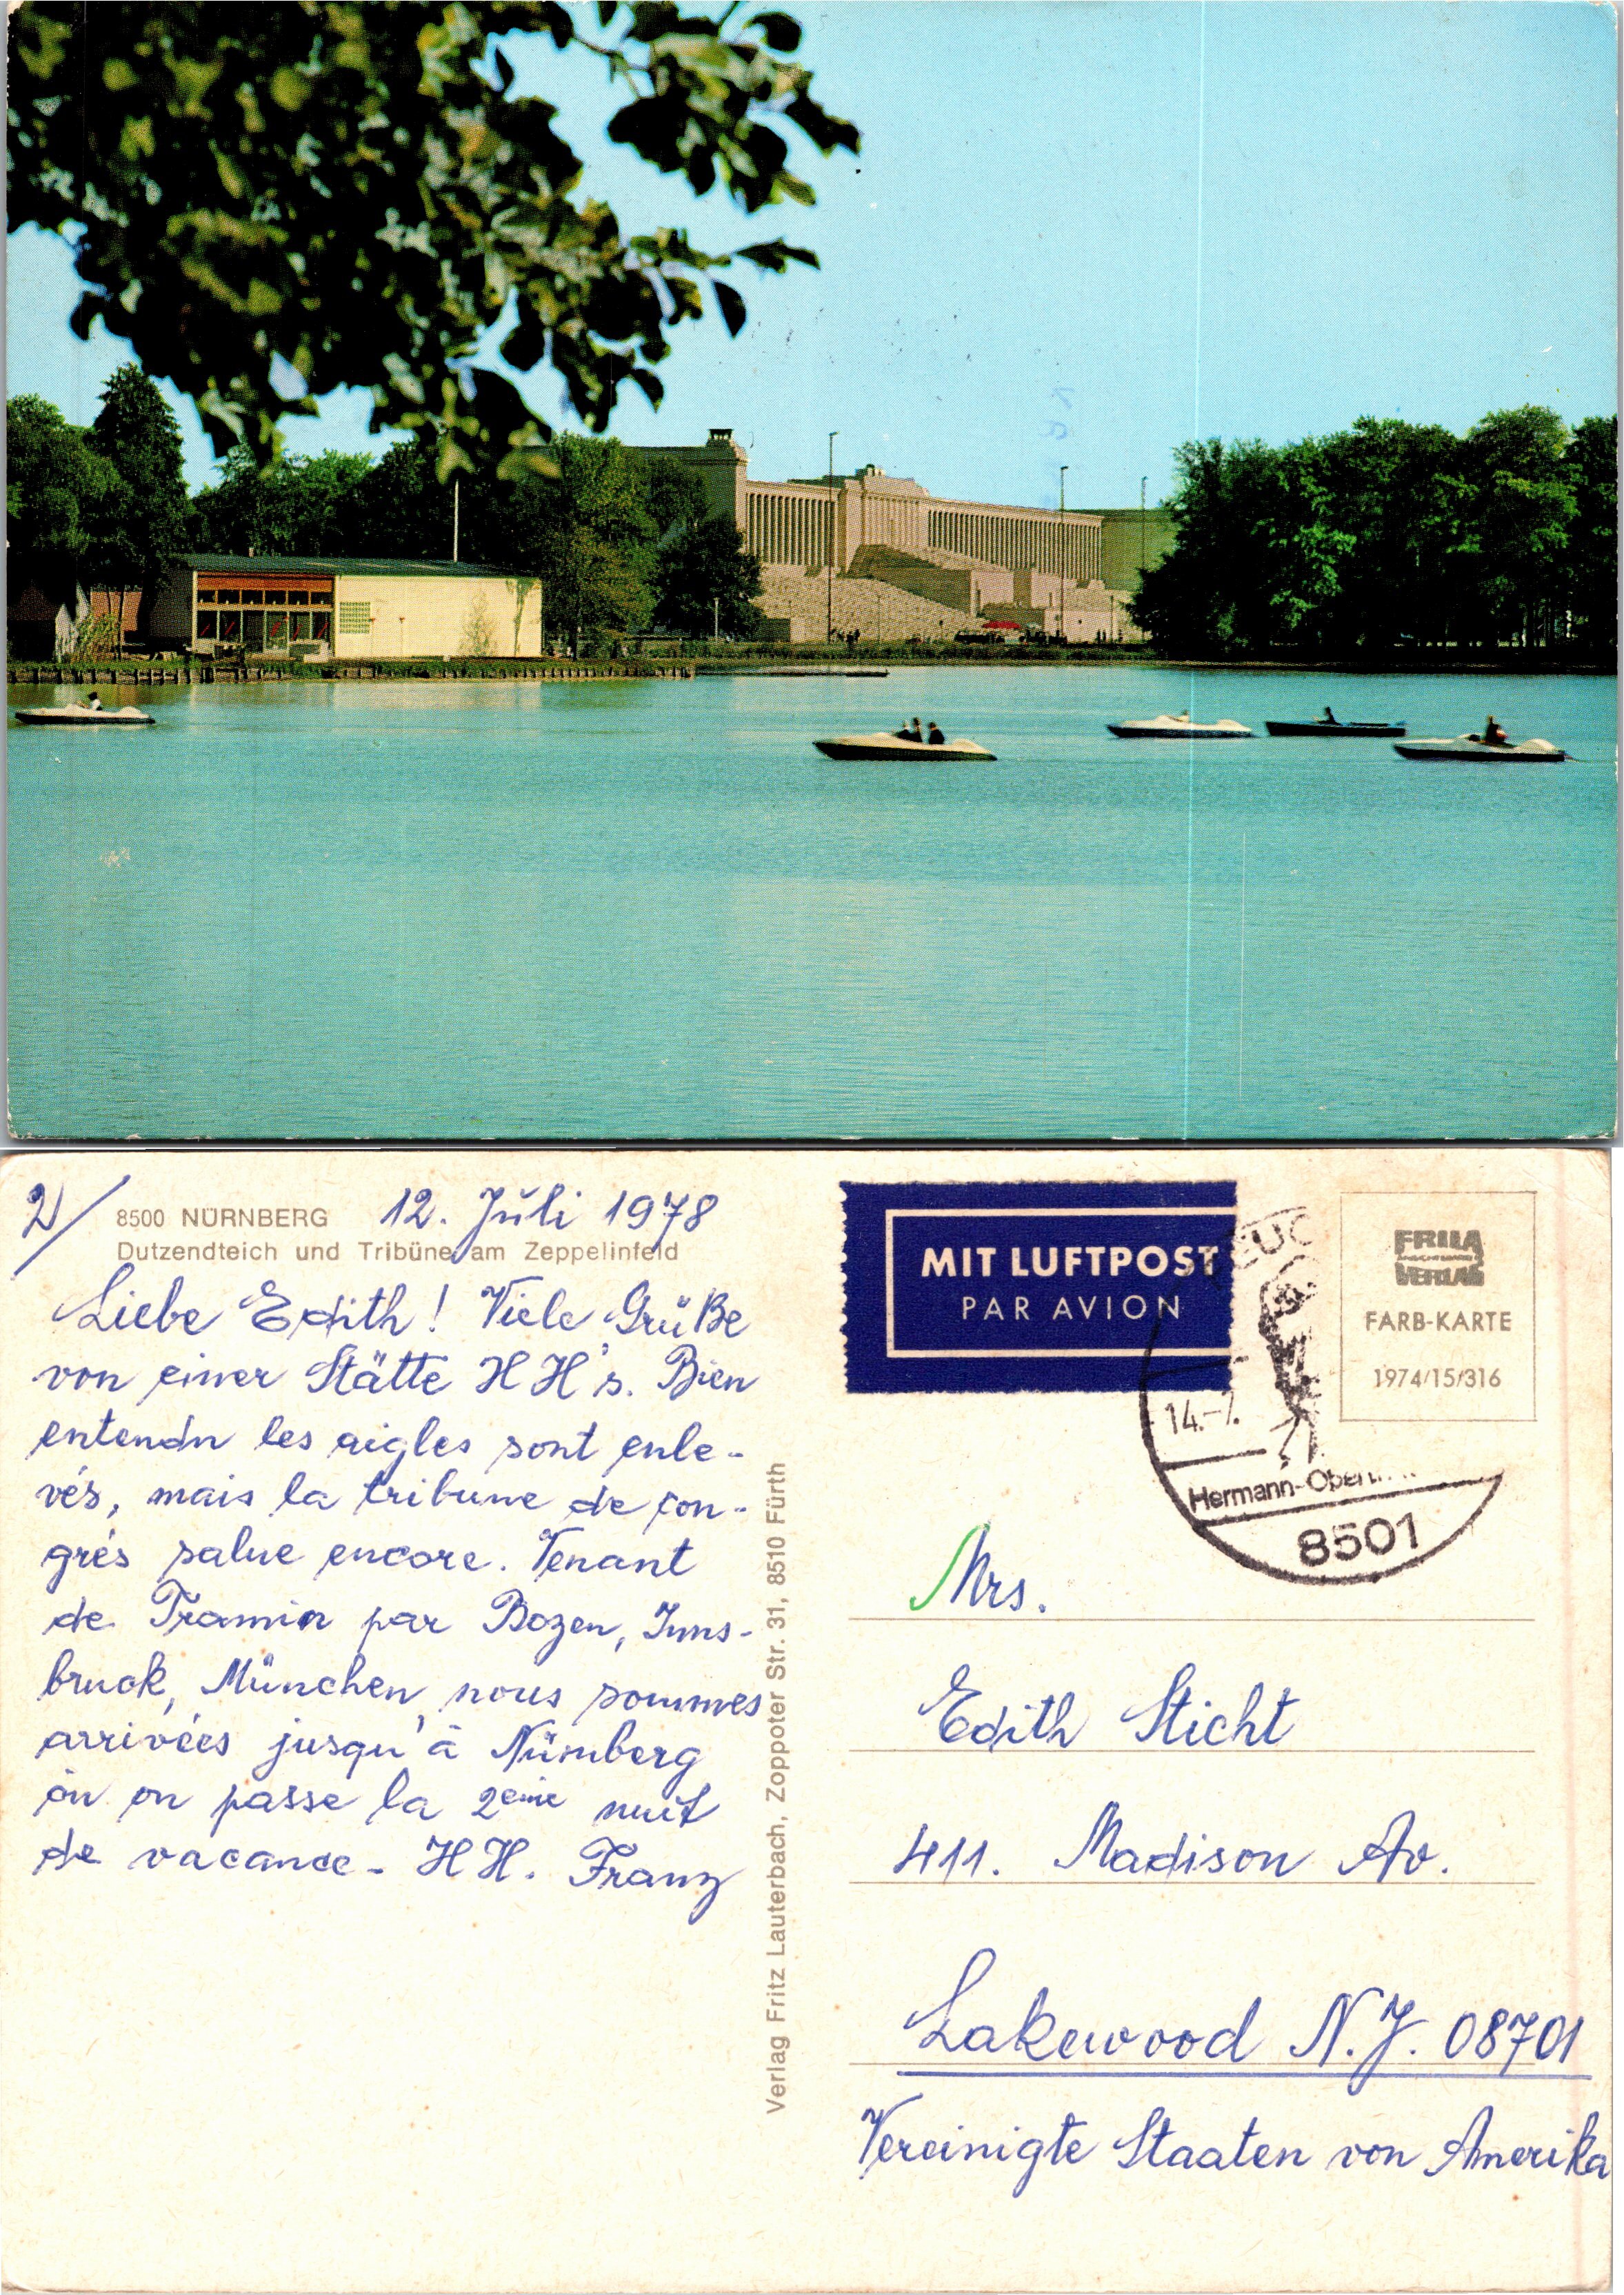 2/
8500 NÜRNBERG 12. Juli 1978
Dutzendteich und Tribüne am Zeppelinfeld
Liebe Edith! Viele Grüße
von einer Stätte HH's. Bien
entendu les aigles sont enle-
vés, mais la tribune de con-
grés salue encore. Venant
de Tramin par Bozen, Inns-
bruck, München, nous sommes
arrivées jusqu'à Nürnberg
où on passe la 2eme nuit
de vacance - HH. Franz
Verlag Fritz Lauterbach, Zoppoter Str. 31, 8510 Fürth
MIT LUFTPOST
PAR AVION
FRILA
VERLAG
FARB-KARTE
1974/15/316
14.-7.
Hermann-Ober
8501
Mrs.
Edith Sticht
411. Madison Av.
Lakewood N.J. 08701
Vereinigte Staaten von Amerika